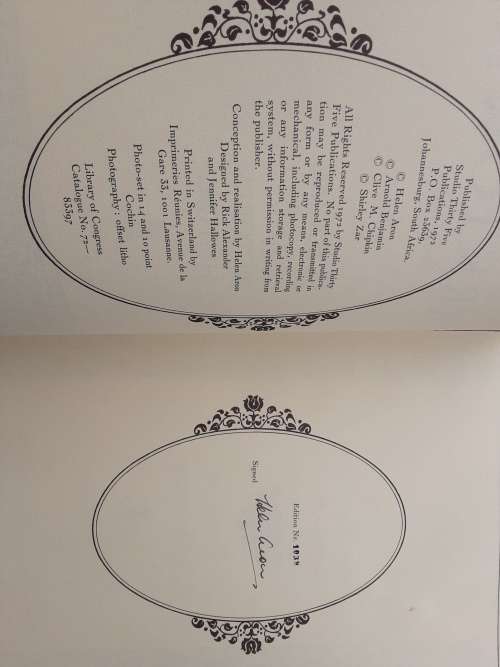 Published by
Studio Thirty Five
Publications, 1972
P.O. Box 23639
Johannesburg, South Africa.
© Helen Aron
© Arnold Benjamin
© Clive M. Chipkin
© Shirley Zar
All Rights Reserved 1972 by Studio Thirty
Five Publications. No part of this publica-
tion may be reproduced or transmitted in
any form or by any means, electronic or
mechanical, including photocopy, recording
or any information storage and retrieval
system, without permission in writing from
the publisher.
Conception and realisation by Helen Aron
Designed by Rick Alexander
and Jennifer Hallowes
Printed in Switzerland by
Imprimeries Réunies, Avenue de la
Gare 33, 1001 Lausanne.
Photo-set in 14 and 10 point
Cochin
Photography: offset litho
Library of Congress
Catalogue No. 72—
83397
Edition Nr. 1039
Signed Helen Aron